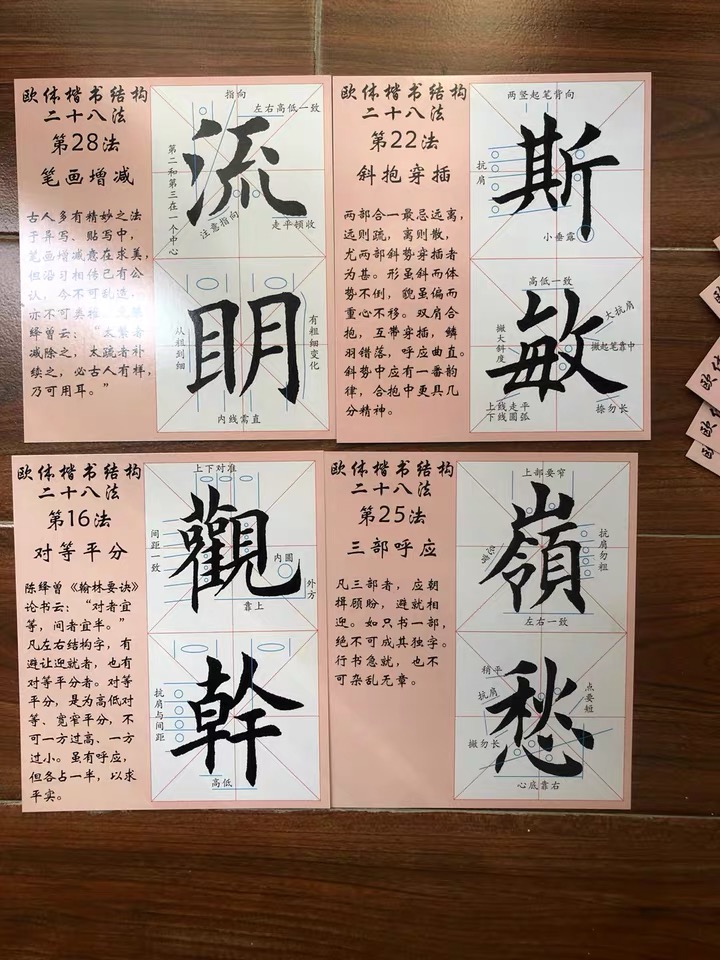 欧体楷书结构
二十八法
第28法
笔画增减
古人多有精妙之法
于异写、贴写中，
笔画增减意在求美，
但沿习相传已有公
认，今不可乱造，
亦不可类推
绎曾云：“太繁者
减除之，太疏者补
续之，必古人有样，
乃可用耳。”
指向
左右高低一致
第二和第三在一个中心
流
注意指向
走平顿收
明
从粗到细
有粗细变化
内线需直
欧体楷书结构
二十八法
第22法
斜抱穿插
两部合一最忌远离，
远则疏，离则散，
尤两部斜势穿插者
为甚。形虽斜而体
势不倒，貌虽偏而
重心不移。双肩合
抱，互带穿插，鳞
羽错落，呼应曲直。
斜势中应有一番韵
律，合抱中更具几
分精神。
两竖起笔背向
抗肩
斯
小垂露
高低一致
大抗肩
撇大斜度
敏
撇起笔靠中
上线走平
下线圆弧
捺勿长
欧体楷书结构
二十八法
第16法
对等平分
陈绎曾《翰林要诀》
论书云：“对者宜
等，间者宜半。”
凡左右结构字，有
避让迎就者，也有
对等平分者。对等
平分，是为高低对
等、宽窄平分，不
可一方过高、一方
过小。虽有呼应，
但各占一半，以求
平实。
上下对准
间距一致
觀
内圆
外方
靠上
抗肩与间距
幹
高低
欧体楷书结构
二十八法
第25法
三部呼应
凡三部者，应朝
揖顾盼，避就相
迎。如只书一部，
绝不可成其独字。
行书急就，也不
可杂乱无章。
上部要窄
嶺
抗肩勿粗
左右一致
稍平
抗肩
愁
点要短
撇勿长
心底靠右